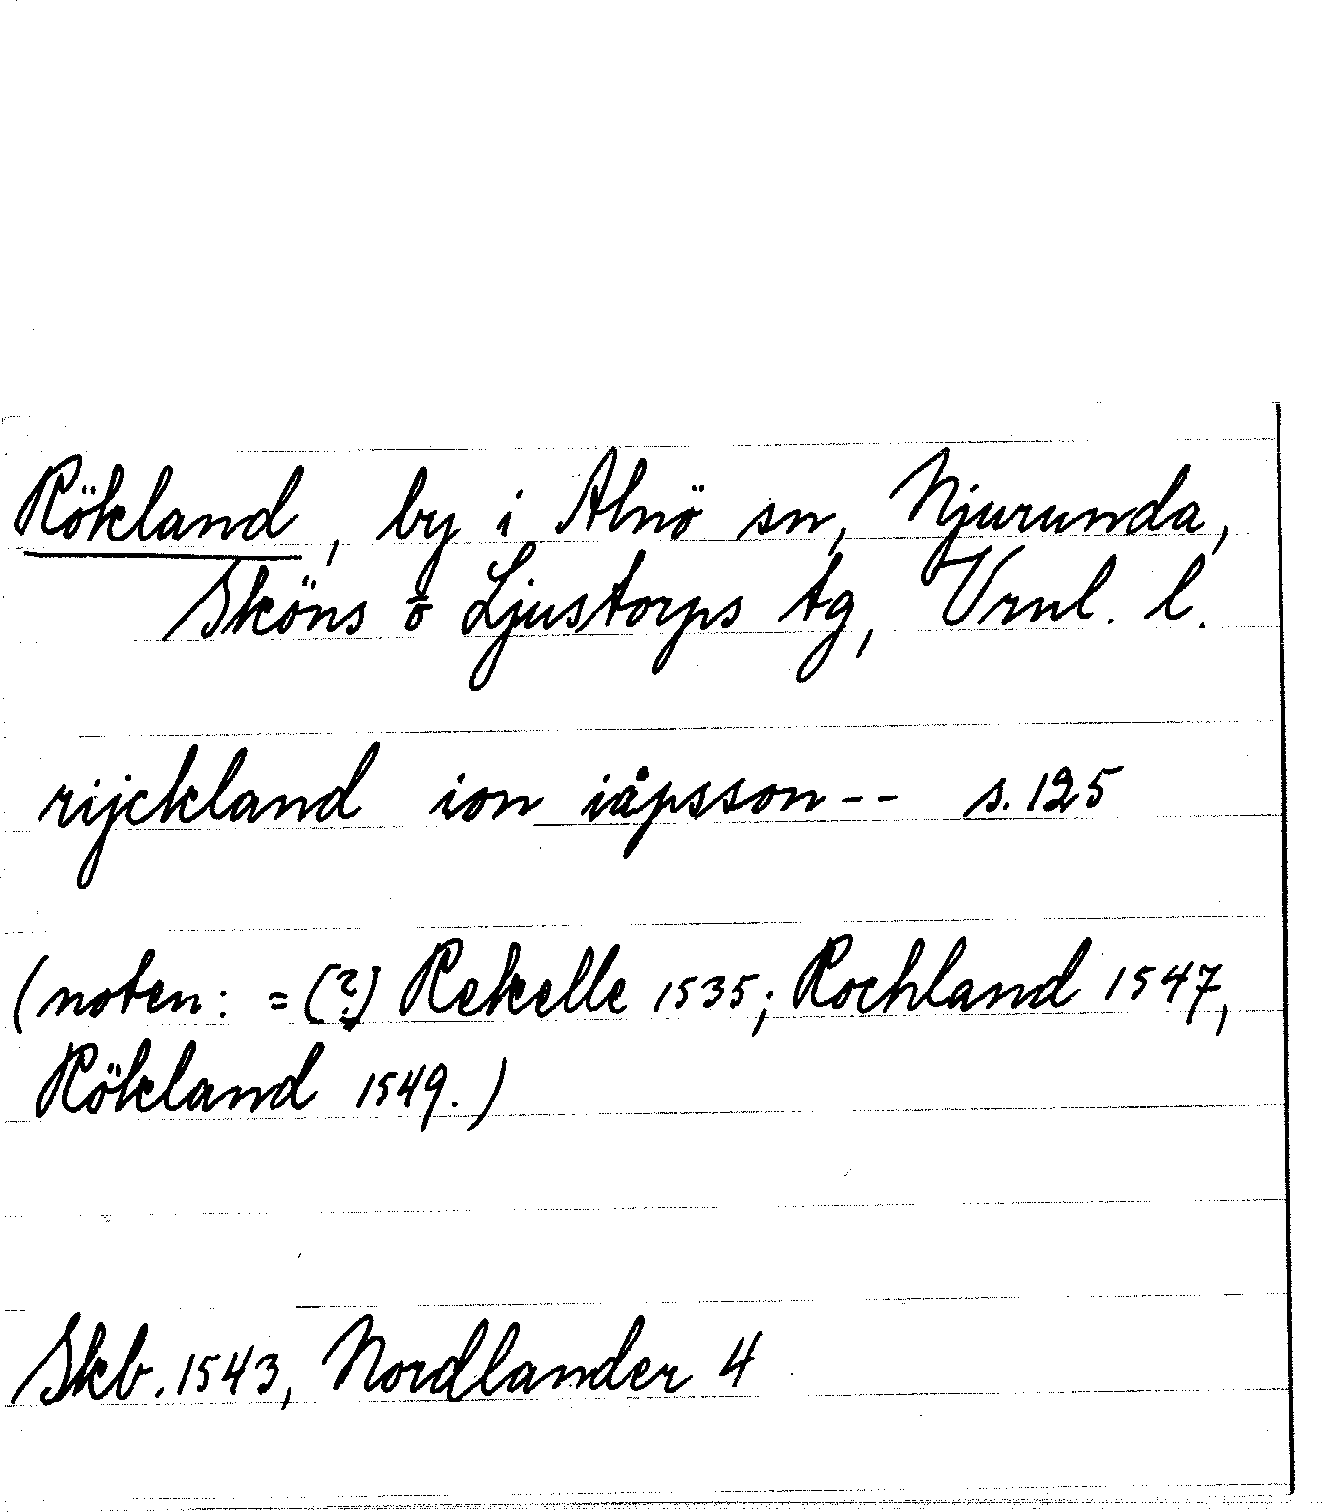 Rökland, by i Alnö sn, Njurunda,
Sköns o Ljustorps tg, Vrnl. l.
rijckland ion iåpsson-- s. 125
(noten: = (?) Rekelle 1535; Rochland 1547,
Rökland 1549.)
Skb. 1543, Nordlander 4